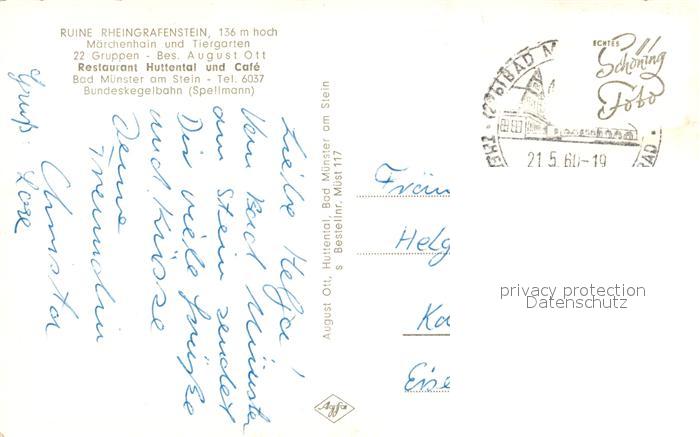 RUINE RHEINGRAFENSTEIN, 136 m hoch
Märchenhain und Tiergarten
22 Gruppen - Bes. August Ott
Restaurant Huttental und Café
Bad Münster am Stein - Tel. 6037
Bundeskegelbahn (Spellmann)
Liebe Helga!
Von Bad Münster
am Stein sendet
Dir viele Grüße
und Küsse
Deine
Freundin
Christa
Gruß Lore
August Ott, Huttental, Bad Münster am Stein
s Bestellnr. Müst 117
Agfa
ECHTES
Schöning
Foto
(22b) BAD M
21.5.60-19
BAD
Fräu
Helg
Ka
Eise
privacy protection
Datenschutz